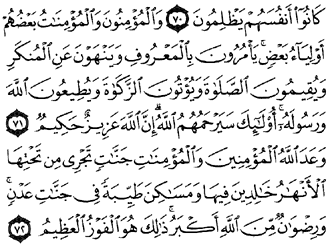 كَانُوٓا۟ أَنفُسَهُمْ يَظْلِمُونَ ٧٠ وَٱلْمُؤْمِنُونَ وَٱلْمُؤْمِنَٰتُ بَعْضُهُمْ
أَوْلِيَآءُ بَعْضٍ ۚ يَأْمُرُونَ بِٱلْمَعْرُوفِ وَيَنْهَوْنَ عَنِ ٱلْمُنكَرِ
وَيُقِيمُونَ ٱلصَّلَوٰةَ وَيُؤْتُونَ ٱلزَّكَوٰةَ وَيُطِيعُونَ ٱللَّهَ
وَرَسُولَهُۥٓ ۚ أُو۟لَٰٓئِكَ سَيَرْحَمُهُمُ ٱللَّهُ ۗ إِنَّ ٱللَّهَ عَزِيزٌ حَكِيمٌ ٧١
وَعَدَ ٱللَّهُ ٱلْمُؤْمِنِينَ وَٱلْمُؤْمِنَٰتِ جَنَّٰتٍ تَجْرِى مِن تَحْتِهَا
ٱلْأَنْهَٰرُ خَٰلِدِينَ فِيهَا وَمَسَٰكِنَ طَيِّبَةً فِى جَنَّٰتِ عَدْنٍ ۚ
وَرِضْوَٰنٌ مِّنَ ٱللَّهِ أَكْبَرُ ۚ ذَٰلِكَ هُوَ ٱلْفَوْزُ ٱلْعَظِيمُ ٧٢